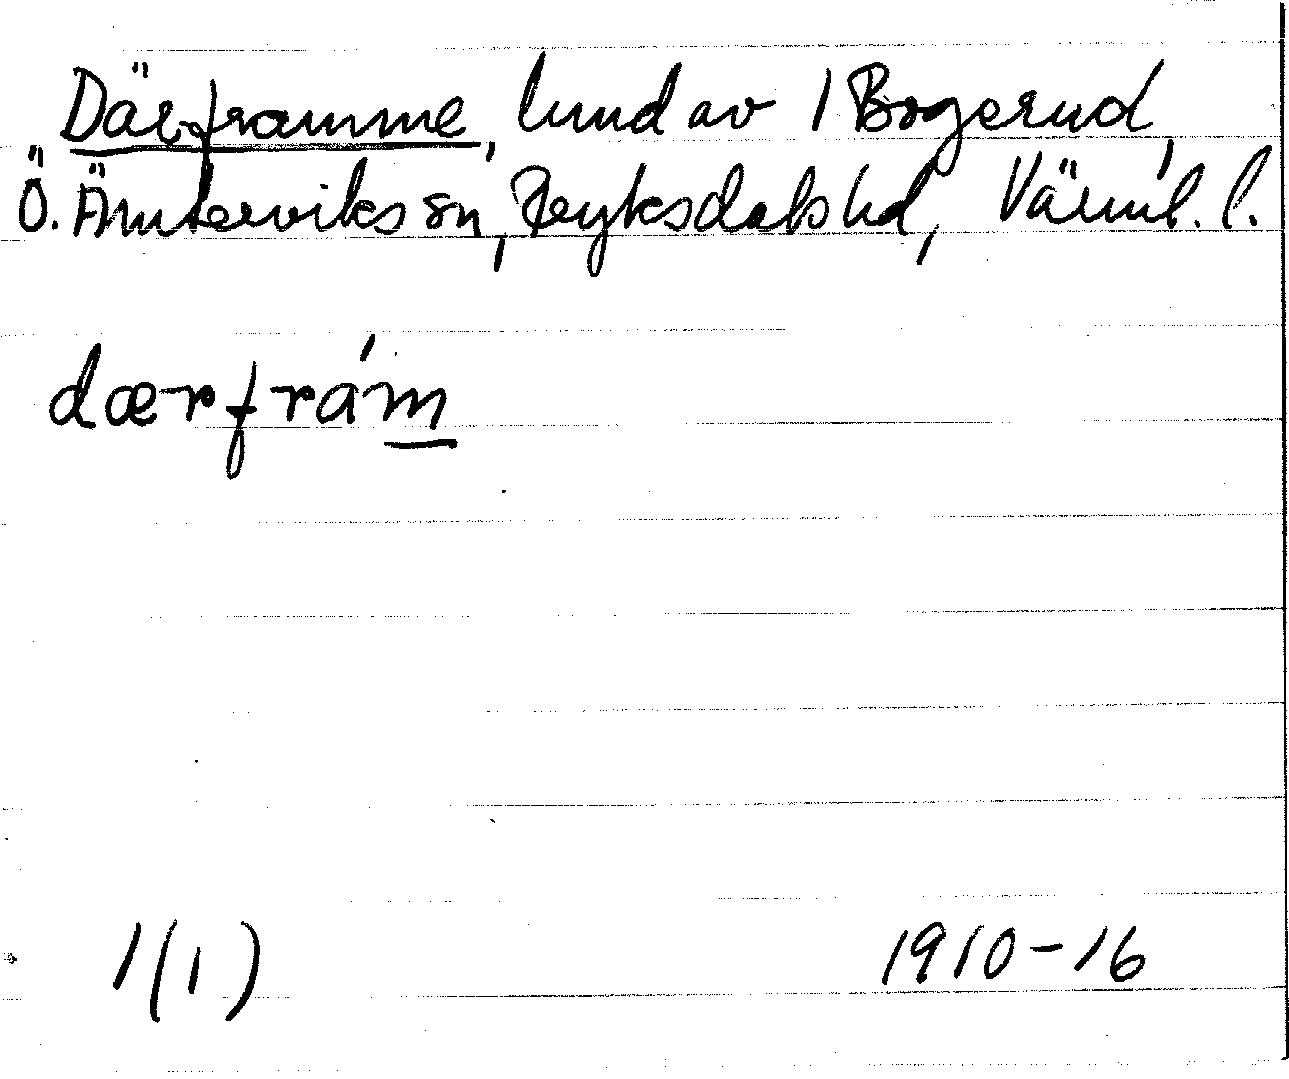 Därframme, lund av 1 Bogerud,
Ö. Ämterviks sn, Fryksdals hd, Värml. l.
dærfrám
1(1) 1910-16